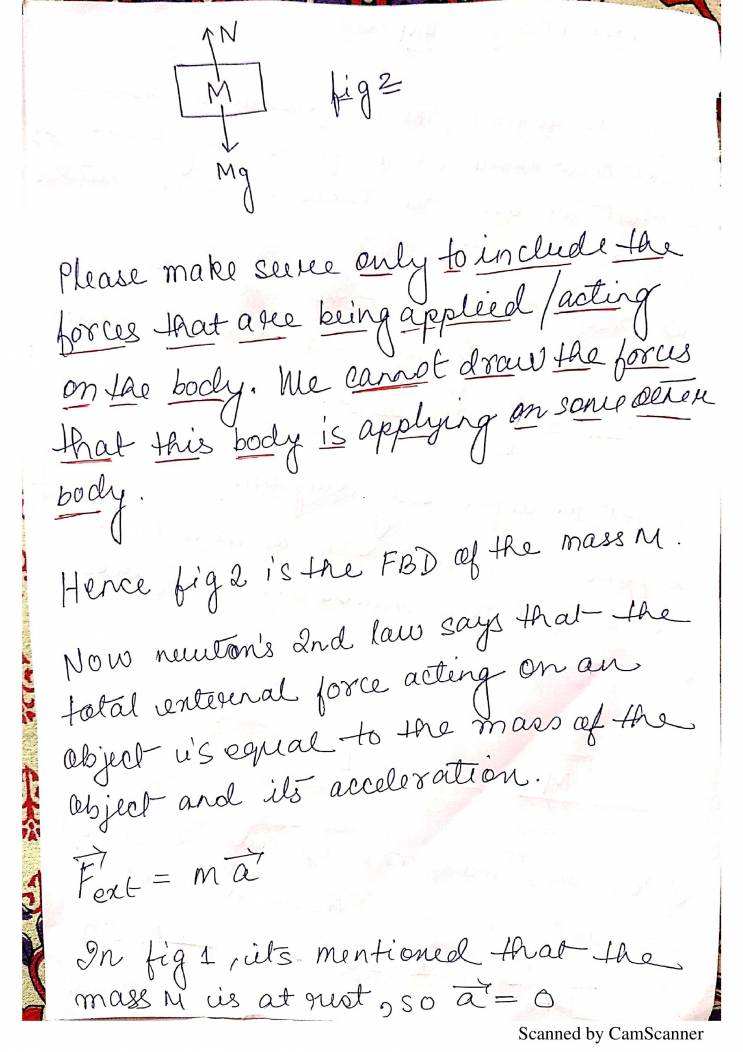 N
M
fig 2
Mg
Please make sure only to include the
forces that are being applied / acting
on the body. We cannot draw the forces
that this body is applying on some other
body.
Hence fig 2 is the FBD of the mass M.
Now newton's 2nd law says that the
total external force acting on an
object is equal to the mass of the
object and its acceleration.
F⃗ext = m a⃗
In fig 1, its mentioned that the
mass M is at rest, so a⃗ = 0
Scanned by CamScanner